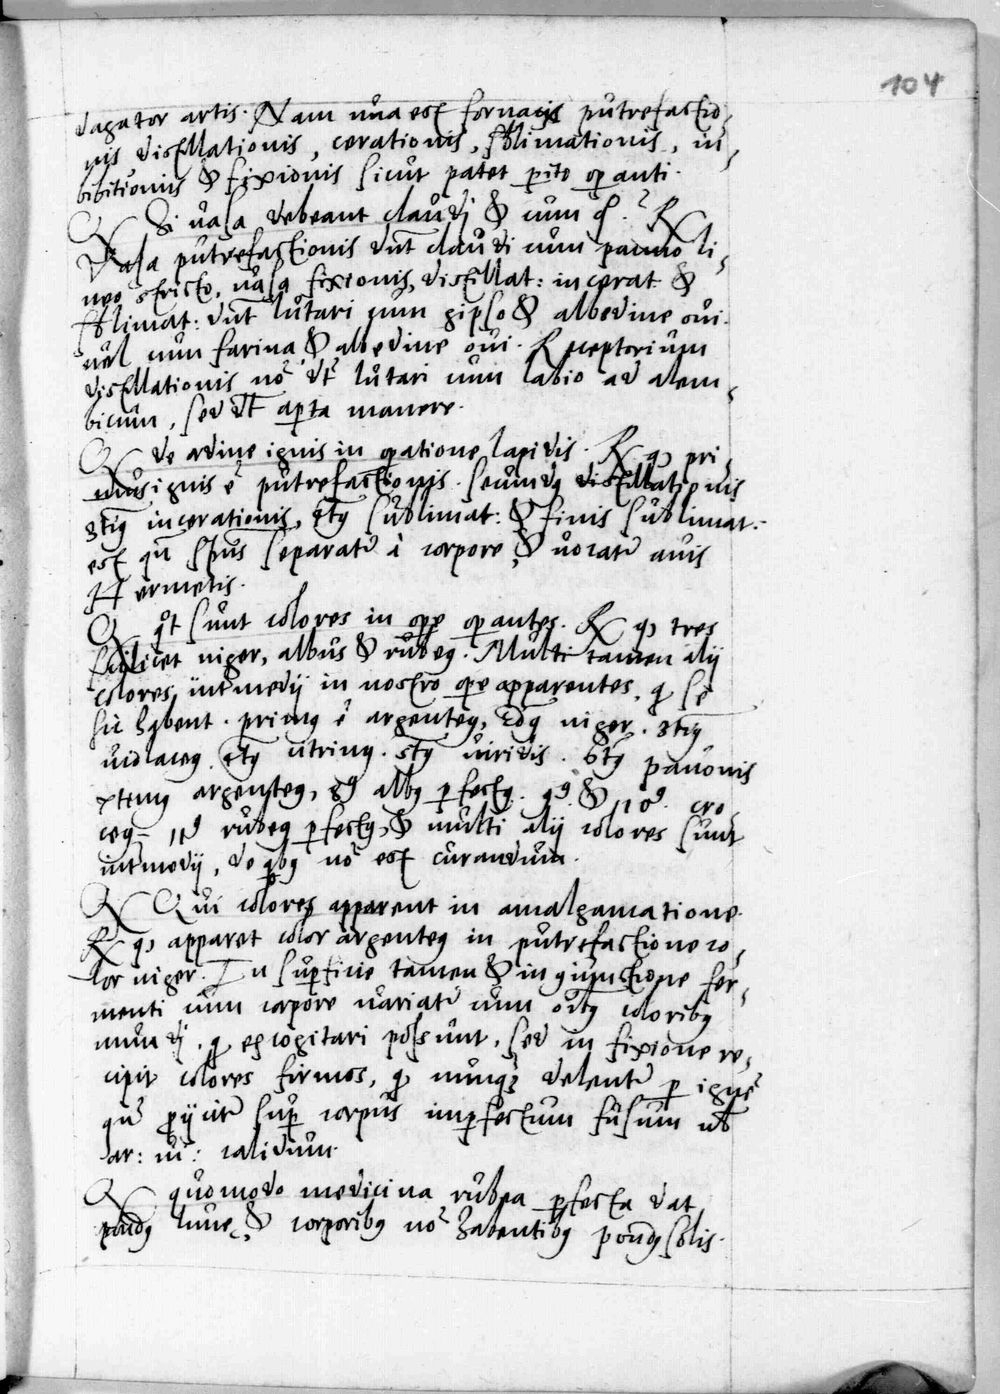 104
vagator artis. Nam una est fornacis putrefactio,
nis distillationis, cerationis, sblimationis, in,
bibitionis & fixionis sicut patet pito opanti.
Q Si vasa debeant claudi & cum q. ? R
Vasa putrefactionis dnt claudi cum panno li,
neo stricto, vasa fixionis, distillat: incerat &
sblimat: dnt lutari cum gipso & albedine oui.
uel cum farina & albedine oui. Receptorium
distillationis nō dt lutari cum labio ad alem,
bicum, sed dt apta manere.
Q de ordine ignis in opatione lapidis. R q pri,
mus ignis ē putrefactionis. secundq distillationis
3tiq incerationis, 4tq sublimat: & finis sublimat:
est qn spus separatr à corpore, & uocatr auis
Hermetis.
Q qt sunt colores in ope opantes. R q tres
scilicet niger, albus & rubeq. Multi tamen alij
colores intmedij in nostro ope apparentes, q se
sic habent. primq ē argenteq, 2dq niger. 3tiq
uiolaceq 4tq citrinq. 5tq uiridis. 6tq pauonis
7timq argenteq, 8q albq pfectq. 9q & 10q cro,
ceq 11q rubeq pfectq, & multi alij colores sunt
intmedij, de qbq nō est curandum.
Q Qui colores apparent in amalgamatione.
R q apparet color argenteq in putrefactione co,
lor niger. In supficie tamen & in 9iunctione fer,
menti cum corpore uariatr cum oibq coloribq
mundi, q excogitari possunt, sed in fixione re,
cipit colores firmos, q nunqz delentr p ignē
qn pijcitr sup corpus impfectum fusum ub
ar: ui: calidum.
Q quomodo medicina rubea pfecta dat
pondq lune, & corporibq nō habentibq pondq solis.